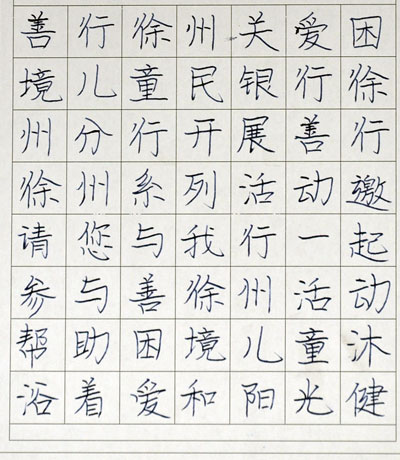 善行徐州关爱困
境儿童民银行徐
州分行开展善行
徐州系列活动邀
请您与我行一起
参与善徐州活动
帮助困境儿童沐
浴着爱和阳光健